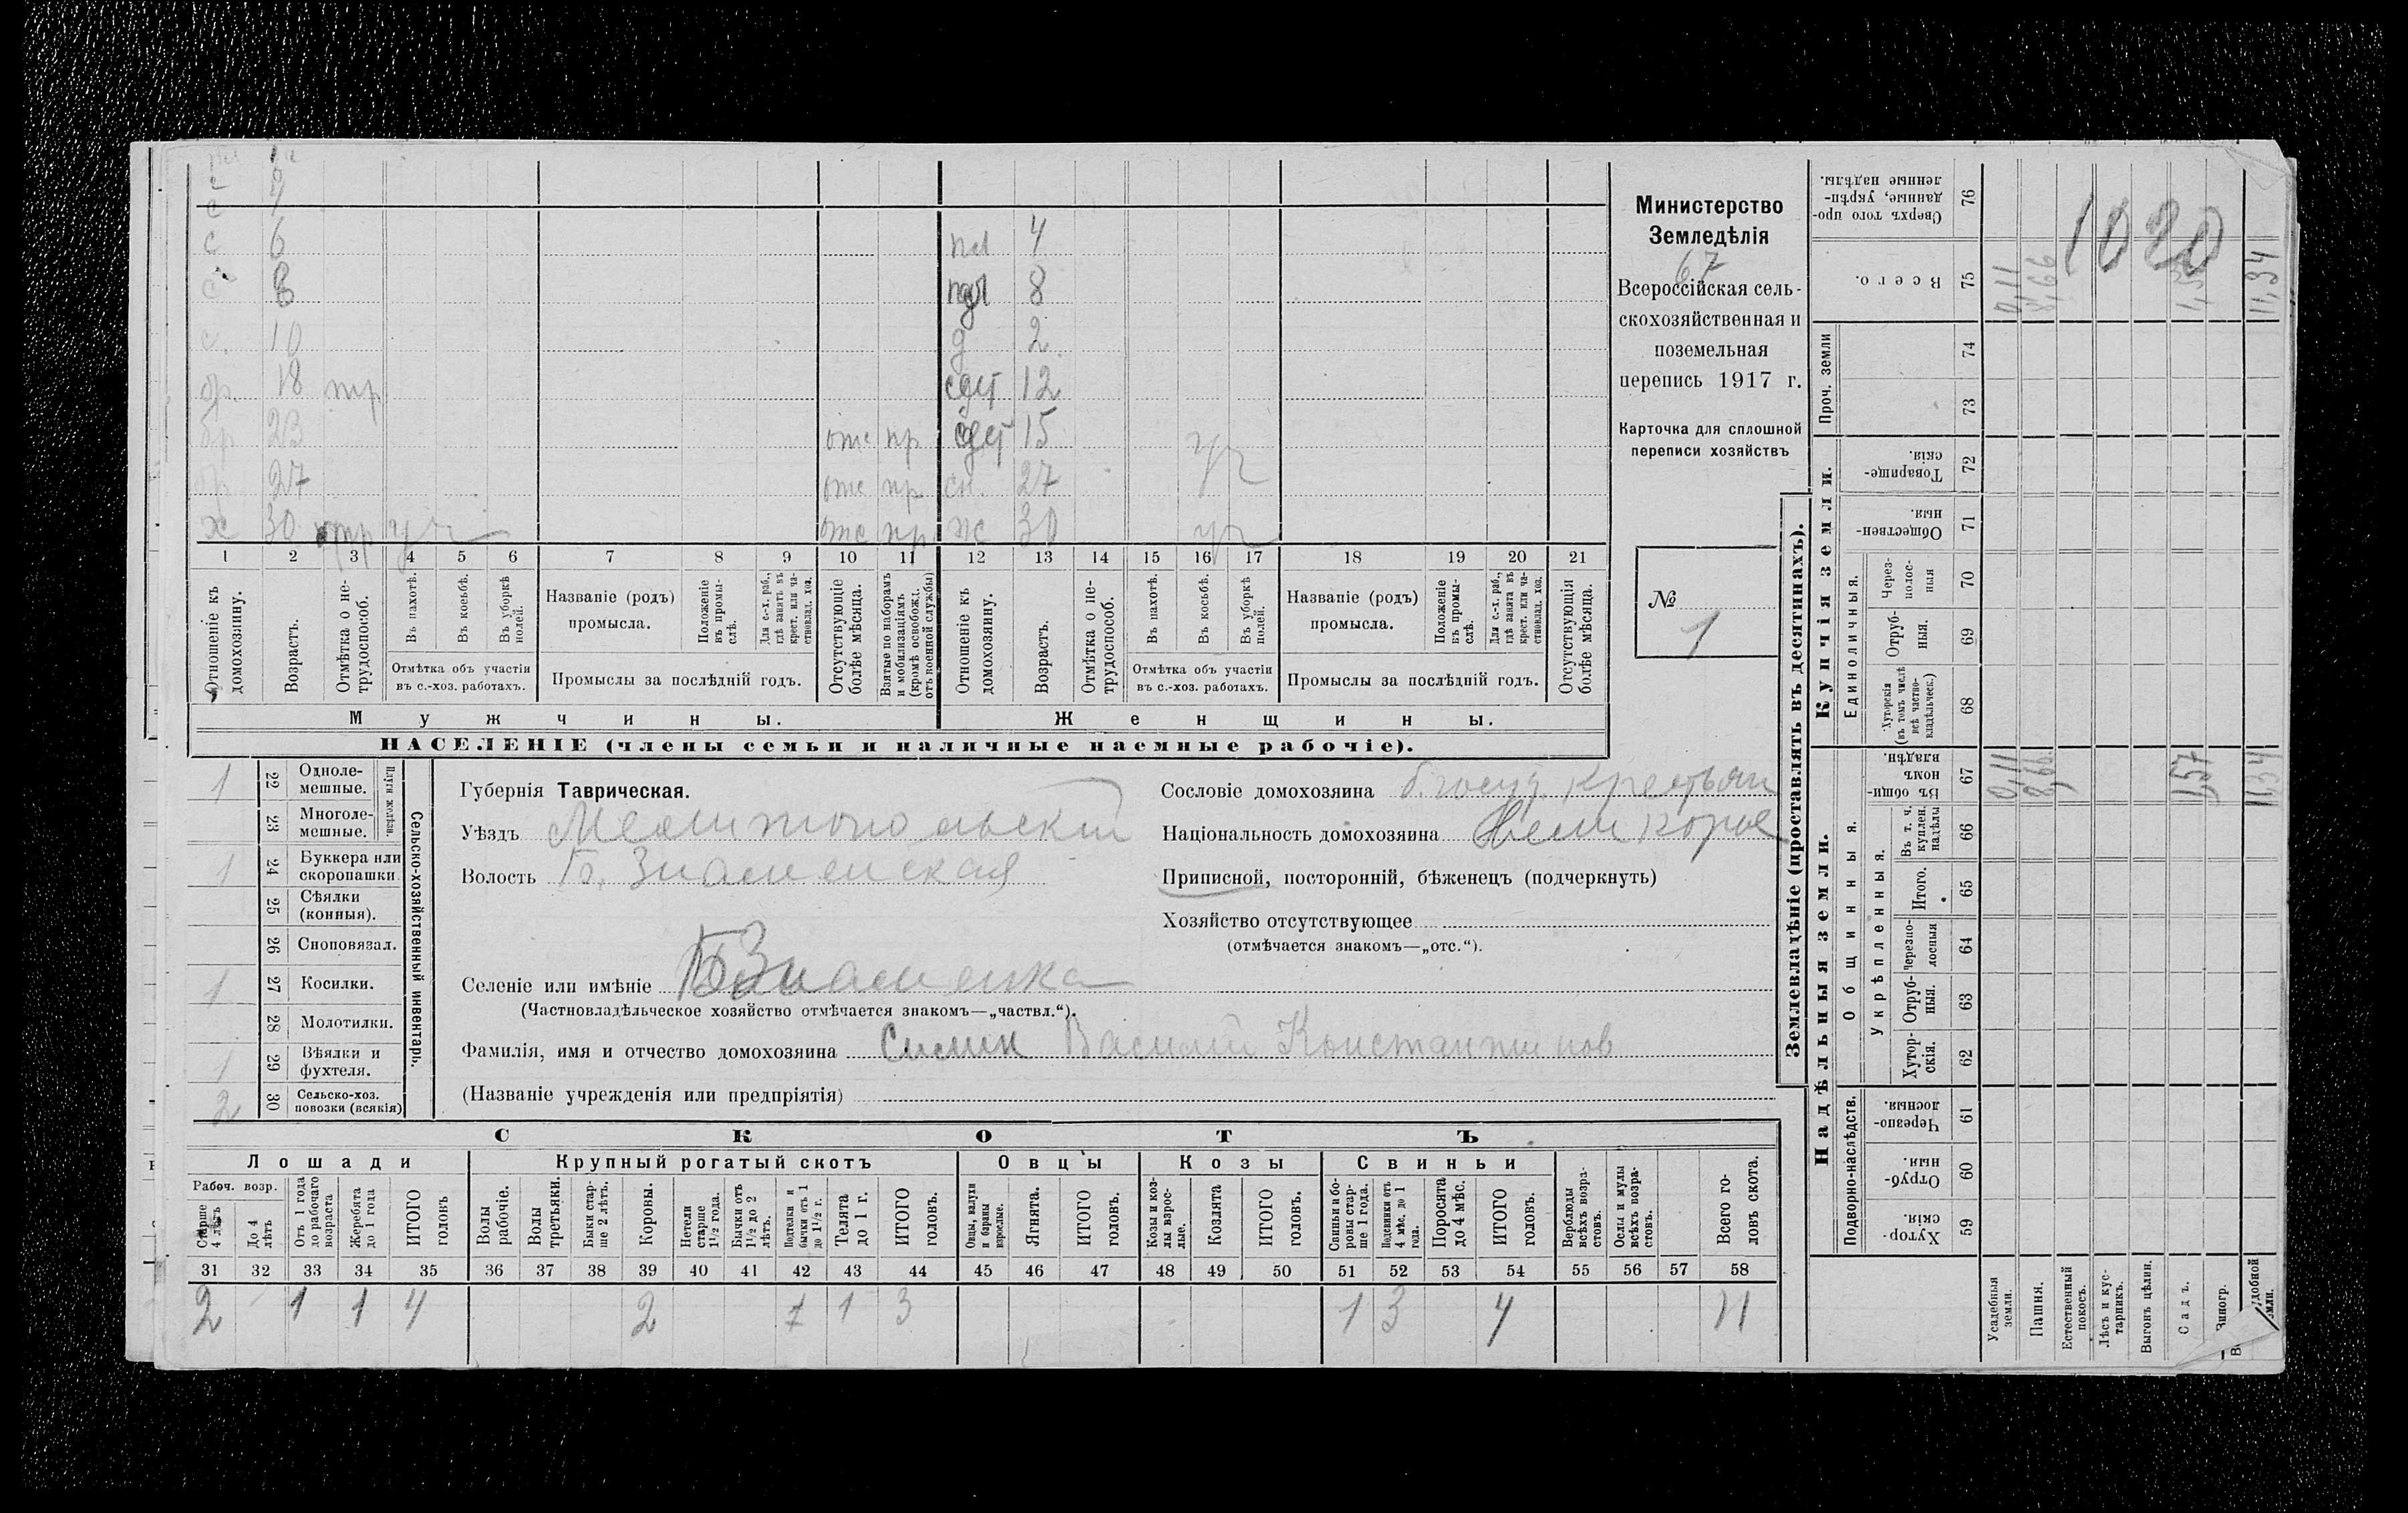 с 6
с 8
с. 10
бр. 18
бр 23
27
х 30
отс пр
отс пр
отс пр
пл 4
8
д 2
12
15
сн. 27
ж 30
1 2 3 4 5 6 7 8 9 10 11 12 13 14 15 16 17 18 19 20 21
Отношеніе къ домохозяину.
Возрастъ.
Отмѣтка о не-
трудоспособ.
Въ пахотѣ.
Въ косьбѣ.
Въ уборкѣ полей.
Отмѣтка объ участіи
въ с.-хоз. работахъ.
Названіе (родъ)
промысла.
Положеніе въ промы-
слѣ.
Для с.-х. раб., гдѣ занятъ въ крест. или ча-
стновлад. хоз.
Промыслы за послѣдній годъ.
Отсутствующіе болѣе мѣсяца.
Взятые по наборамъ и мобилизаціямъ (кромѣ освобожд. отъ военной службы)
Отношеніе къ домохозяину.
Возрастъ.
Отмѣтка о не-
трудоспособ.
Въ пахотѣ.
Въ косьбѣ.
Въ уборкѣ полей.
Отмѣтка объ участіи
въ с.-хоз. работахъ.
Названіе (родъ)
промысла.
Положеніе въ промы-
слѣ.
Для с.-х. раб., гдѣ занята въ крест. или ча-
стновлад. хоз.
Промыслы за послѣдній годъ.
Отсутствующія болѣе мѣсяца.
Мужчины.
Женщины.
НАСЕЛЕНІЕ (члены семьи и наличные наемные рабочіе).
Министерство
Земледѣлія
67
Всероссійская сель-
скохозяйственная и
поземельная
перепись 1917 г.
Карточка для сплошной
переписи хозяйствъ
№
1
1 22 Одноле-
мешные.
23 Многоле-
мешные.
Плуги желѣзн.
1 24 Буккера или
скоропашки
25 Сѣялки
(конныя).
26 Сноповязал.
1 27 Косилки.
28 Молотилки.
1 29 Вѣялки и
фухтеля.
2 30 Сельско-хоз.
повозки (всякія)
Сельско-хозяйственный инвентарь.
Губернія Таврическая.
Уѣздъ Мелитопольскій
Волость Б. Знаменская
Селеніе или имѣніе Б Знаменка
(Частновладѣльческое хозяйство отмѣчается знакомъ—„частвл.“).
Фамилія, имя и отчество домохозяина Василій Константинов
(Названіе учрежденія или предпріятія)
Сословіе домохозяина б. госуд. крестьян
Національность домохозяина
Приписной, посторонній, бѣженецъ (подчеркнуть)
Хозяйство отсутствующее
(отмѣчается знакомъ—„отс.“).
СКОТЪ
Лошади
Крупный рогатый скотъ
Овцы
Козы
Свиньи
Рабоч. возр.
Старше 4 лѣтъ
До 4 лѣтъ
Отъ 1 года до рабочаго возраста
Жеребята до 1 года
ИТОГО головъ
Волы рабочіе.
Волы третьяки.
Быки стар-
ше 2 лѣтъ.
Коровы.
Нетели старше 1½ года.
Бычки отъ 1½ до 2 лѣтъ.
Подтелки и бычки отъ 1 до 1½ г.
Телята до 1 г.
ИТОГО головъ.
Овцы, валухи и бараны взрослые.
Ягнята.
ИТОГО головъ.
Козы и коз-
лы взрос-
лые.
Козлята
ИТОГО головъ.
Свиньи и бо-
ровы стар-
ше 1 года.
Подсвинки отъ 4 мѣс. до 1 года.
Поросята до 4 мѣс.
ИТОГО головъ.
Верблюды всѣхъ возра-
стовъ.
Ослы и мулы всѣхъ возра-
стовъ.
Всего го-
ловъ скота.
31 32 33 34 35 36 37 38 39 40 41 42 43 44 45 46 47 48 49 50 51 52 53 54 55 56 57 58
2 1 1 4 2 1 3 1 3 4 11
Землевладѣніе (проставлять въ десятинахъ).
Надѣльныя земли.
Купчія земли.
Подворно-наслѣдств.
Общинныя.
Укрѣпленныя.
Единоличныя.
Проч. земли
Хутор-
скія. 59
Отруб-
ныя. 60
Черезпо-
лосныя. 61
Хутор-
скія. 62
Отруб-
ныя. 63
Черезпо-
лосныя 64
Итого. 65
Въ т. ч. куплен. надѣлы 66
Въ общи-
номъ владѣн. 67
Хуторскія (въ томъ числѣ всѣ частно-
владѣльческ.) 68
Отруб-
ныя. 69
Через-
полос-
ныя 70
Обществен-
ныя. 71
Товарище-
скія. 72
73
74
Всего. 75
Сверхъ того про-
данные, укрѣп-
ленные надѣлы. 76
Усадебныя земли.
Пашня.
Естественный покосъ.
Лѣсъ и кус-
тарникъ.
Выгонъ цѣлин.
Садъ.
Виногр.
0,11
1,57
11,34
0,11
11,34
1020